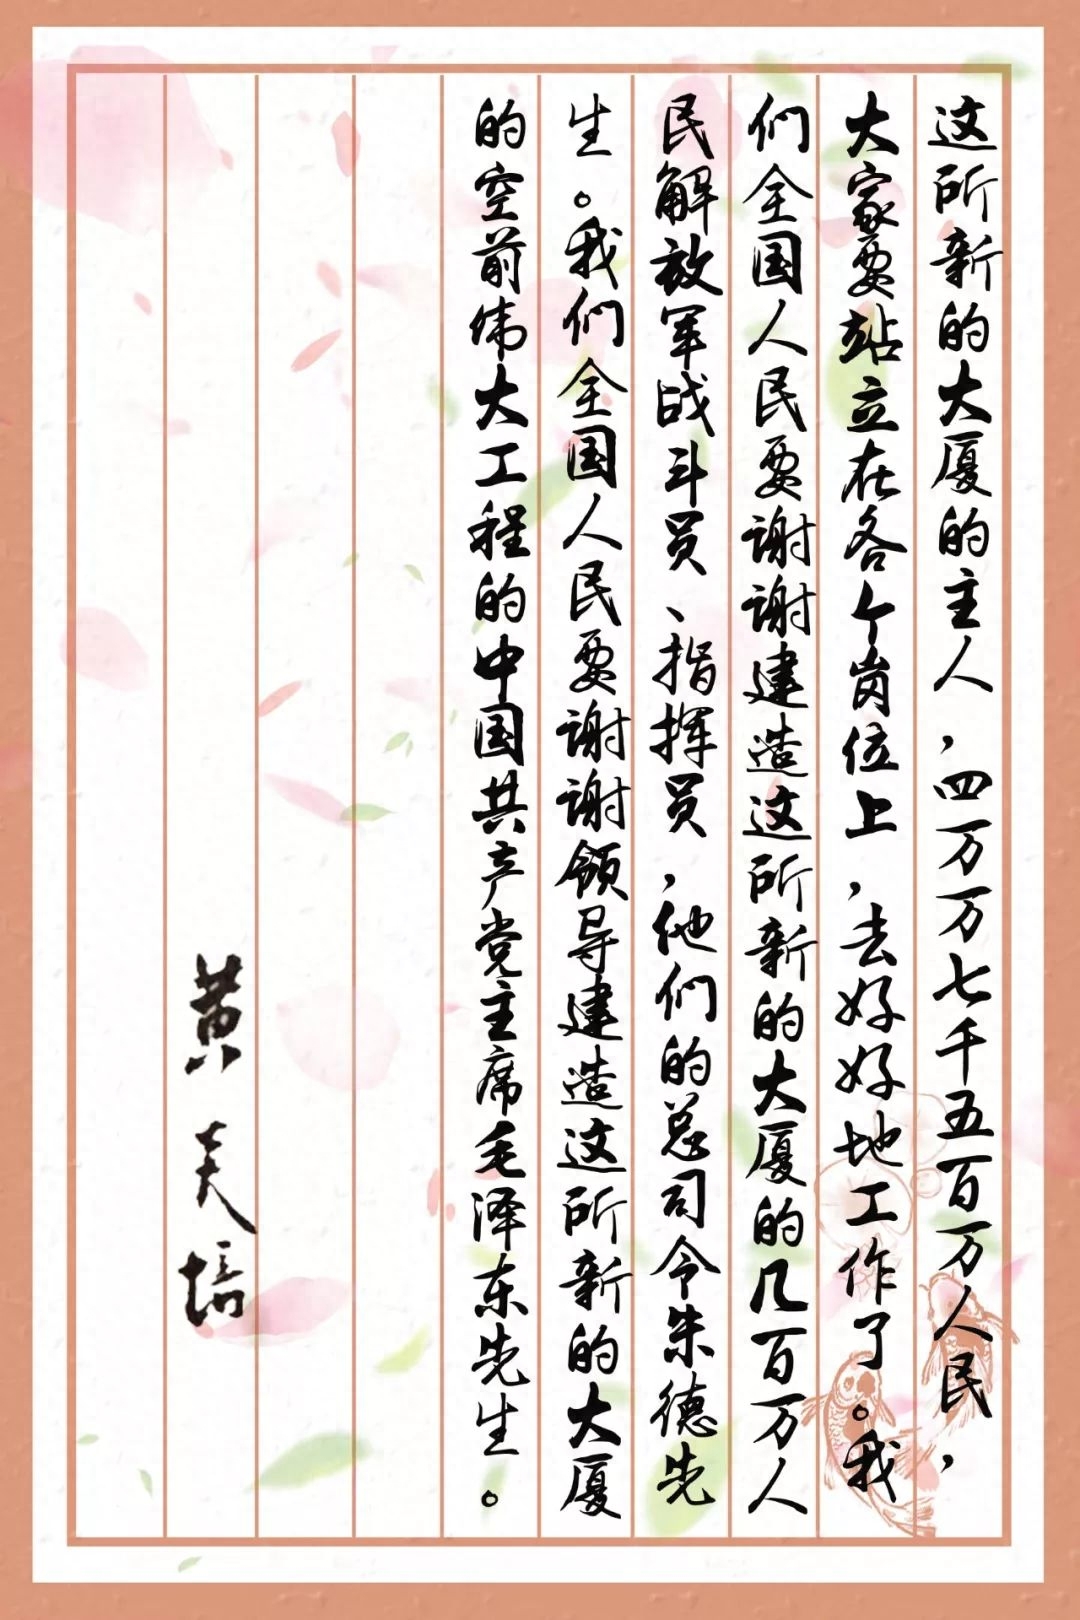 这所新的大厦的主人，四万万七千五百万人民，
大家要站立在各个岗位上，去好好地工作了。我
们全国人民要谢谢建造这所新的大厦的几百万人
民解放军战斗员、指挥员，他们的总司令朱德先
生。我们全国人民要谢谢领导建造这所新的大厦
的空前伟大工程的中国共产党主席毛泽东先生。
黄炎培